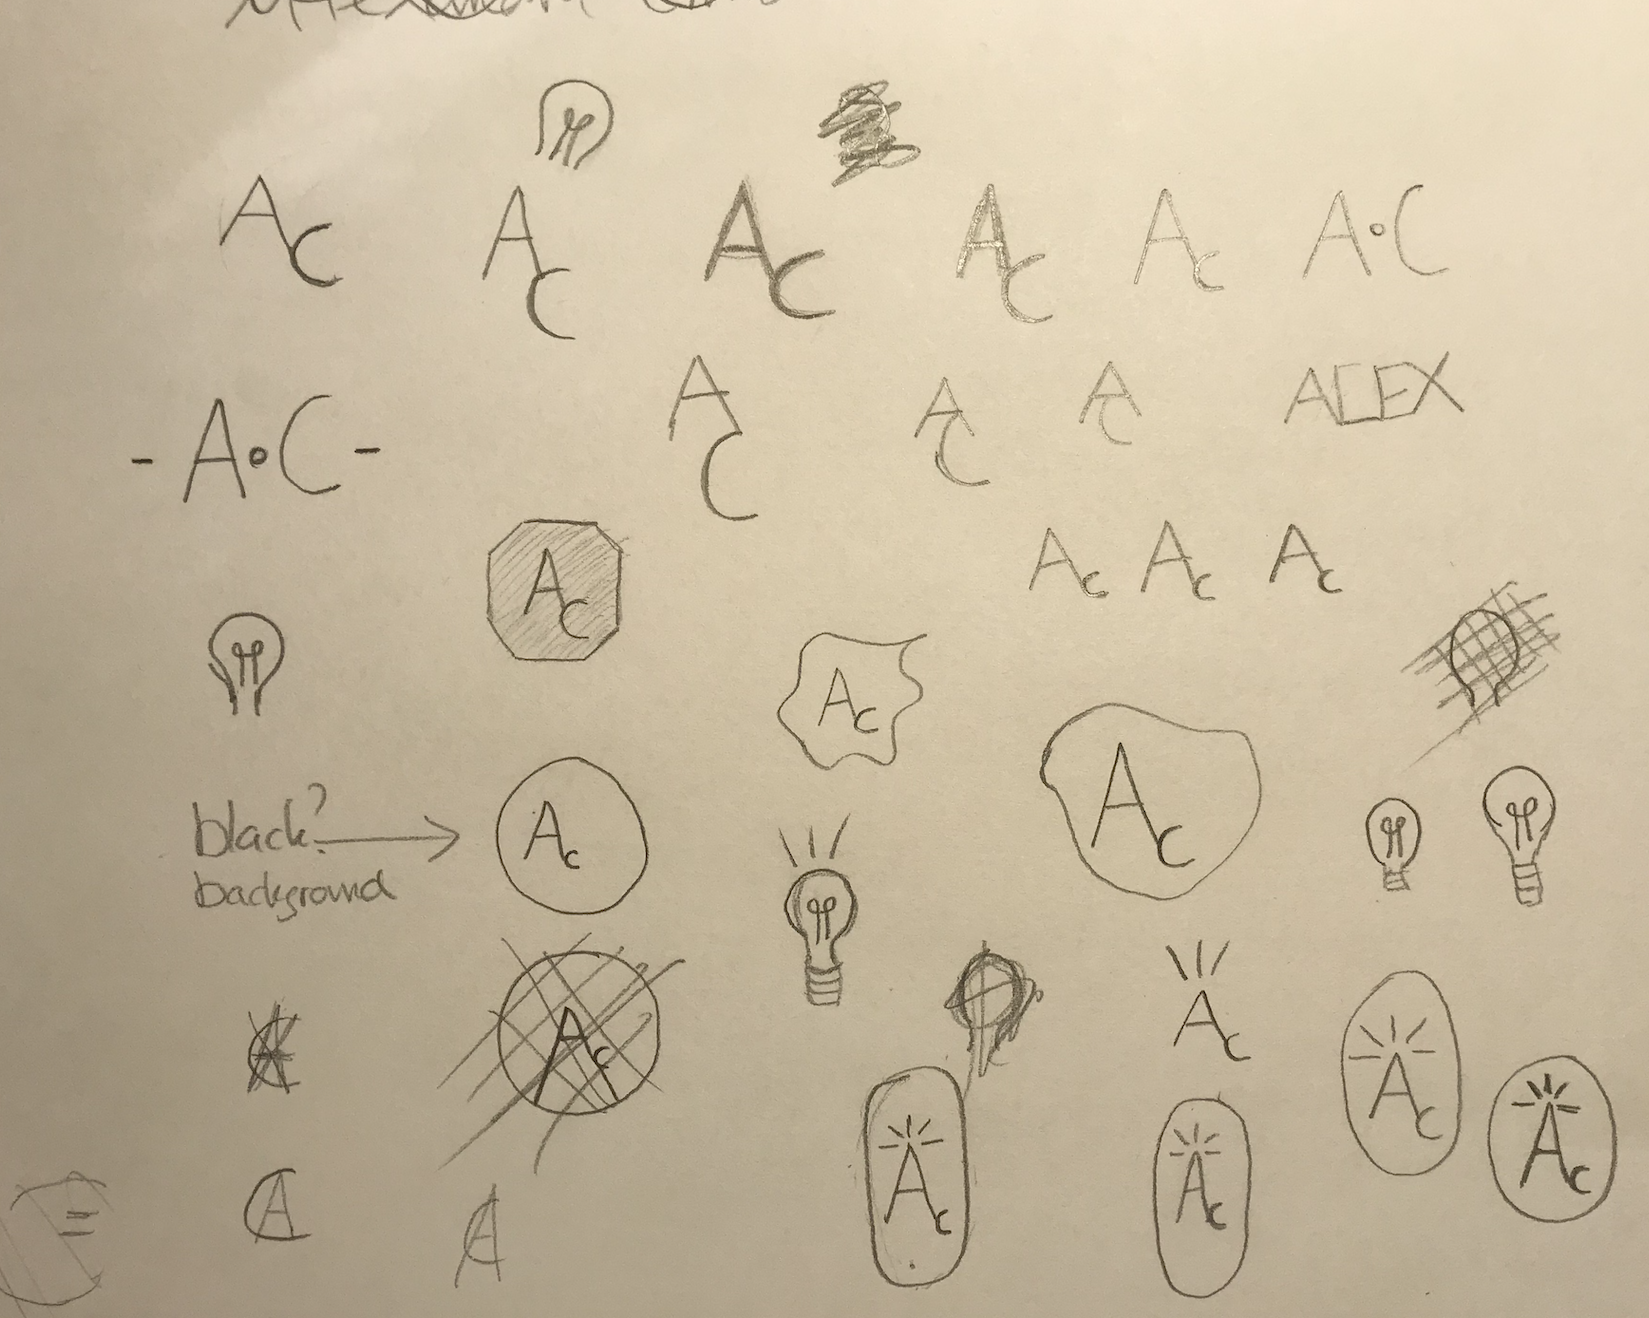 A C
A C
A C
A C
A C
A•C
- A•C -
A C
A C
A C
ALEX
A C
A C
A C
A C
A C
A C
black?
background
A C
A C
A C
A C
A C
A C
A C
A C